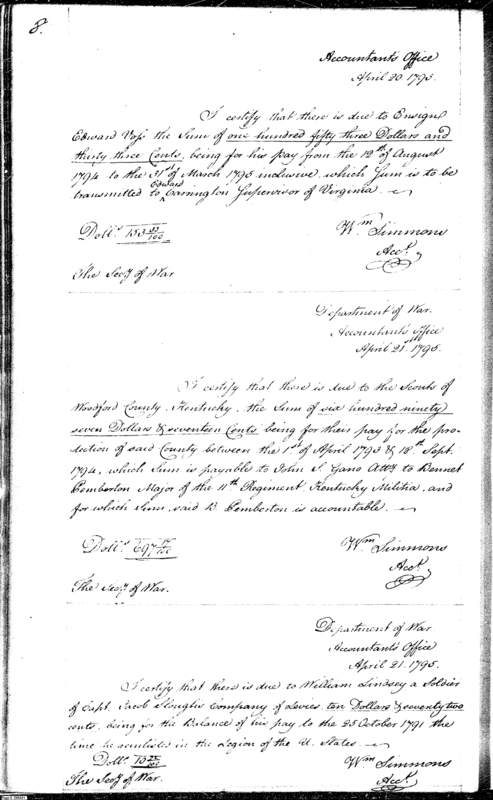 8.
Accountants Office
April 20. 1795.
I certify that there is due to Ensign
Edward Voss the Sum of one hundred fifty three Dollars and
thirty three Cents, being for his pay from the 12th of August
1794 to the 31st of March 1795 inclusive, which Sum is to be
transmitted to Edward Carrington Supervisor of Virginia.
Dolls. 153 33/100
Wm Simmons
Acct.
The Secy of War
Department of War.
Accountants Office
April 21st 1795.
I certify that there is due to the Scouts of
Woodford County, Kentucky, the Sum of six hundred ninety
seven Dollars & seventeen Cents being for their pay for the pro-
tection of said County between the 1st of April 1793 & 18th Sept.
1794, which Sum is payable to John S. Gano Atty to Bennet
Pemberton Major of the 11th Regiment, Kentucky Militia, and
for which Sum, said B. Pemberton is accountable.
Dolls. 697 17/100
Wm Simmons
Acct.
The Secy of War.
Department of War
Accountants Office
April 21. 1795.
I certify that there is due to William Lindsey a Soldier
of Capt. Jacob Sloughs Company of Levies, ten Dollars & seventy two
cents, being for the Balance of his pay to the 25 October 1791 the
time he reenlisted in the Legion of the U. States.
Dolls. 10 72/100
Wm Simmons
Acct.
The Secy of War.